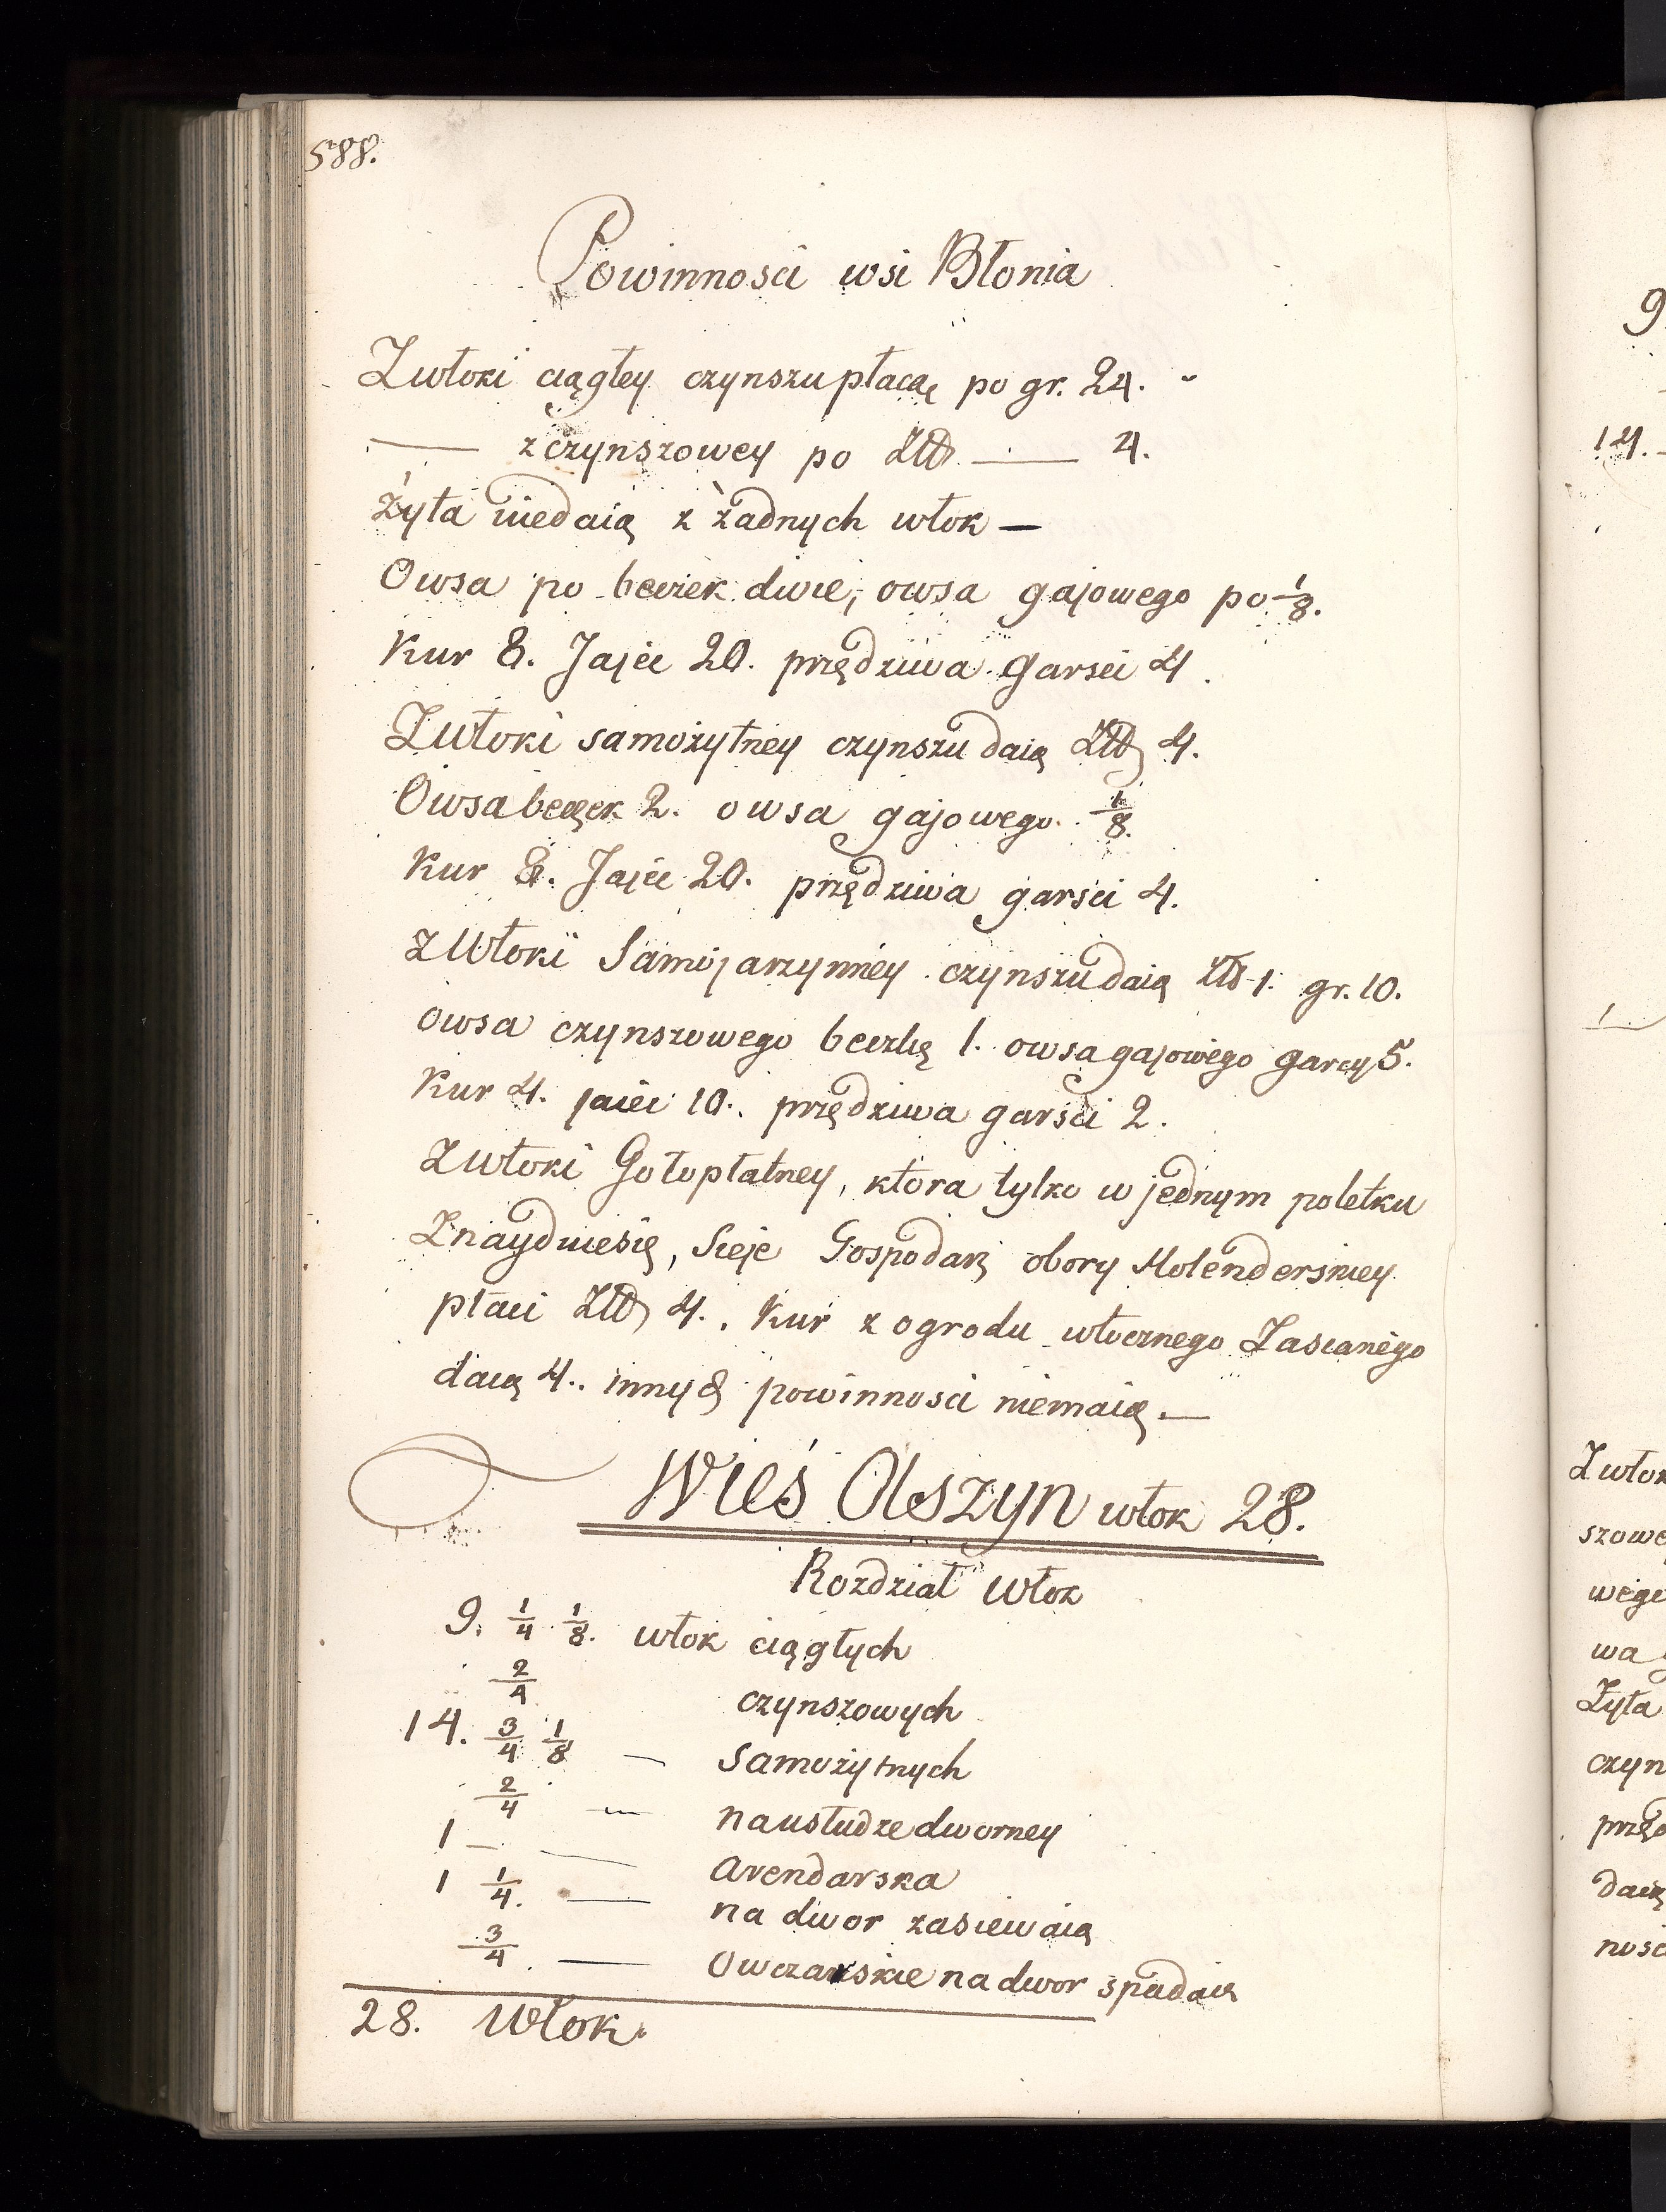 588.
Powinnosci wsi Błonia
Z włoki ciągłey czynszu płacą po gr. 24.
— z czynszowey po Złł. — 4.
Żyta niedaią z żadnych włok —
Owsa po beczek dwie, owsa gajowego po 1/8.
Kur 8. Jajec 20. przędziwa Garsci 4.
Z włoki samożytney czynszu daią Złł 4.
Owsa beczek 2. owsa gajowego 1/8.
Kur 8. Jajec 20. przędziwa garsci 4.
Z Włoki Samojarzynney czynszu daią Złł 1. gr. 10.
owsa czynszowego beczkę 1. owsa gajowego garcy 5.
Kur 4. jaiec 10. przędziwa garsci 2.
Z włoki Gołopłatney, ktora tylko w jednym poletku
Znayduiesię, Sieje Gospodarz obory Holenderskiey
płaci Złł 4. Kur z ogrodu włocznego Zascanego
daią 4. innych powinnosci niemaią. —
Wieś Olszyn włok 28.
Rozdział Włok
9. 1/4 1/8. włok ciągłych
2/4 czynszowych
14. 3/4 1/8 — Samożytnych
2/4 — na usłudze dworney
1 — — Arendarska
1 1/4. — na dwor zasiewaią
3/4. — Owczarskie na dwor spadaią
28. Włok.
9
14.
1
Z włok
szowe
wego
wa
Żyta
czyn
przę
daią
nosc